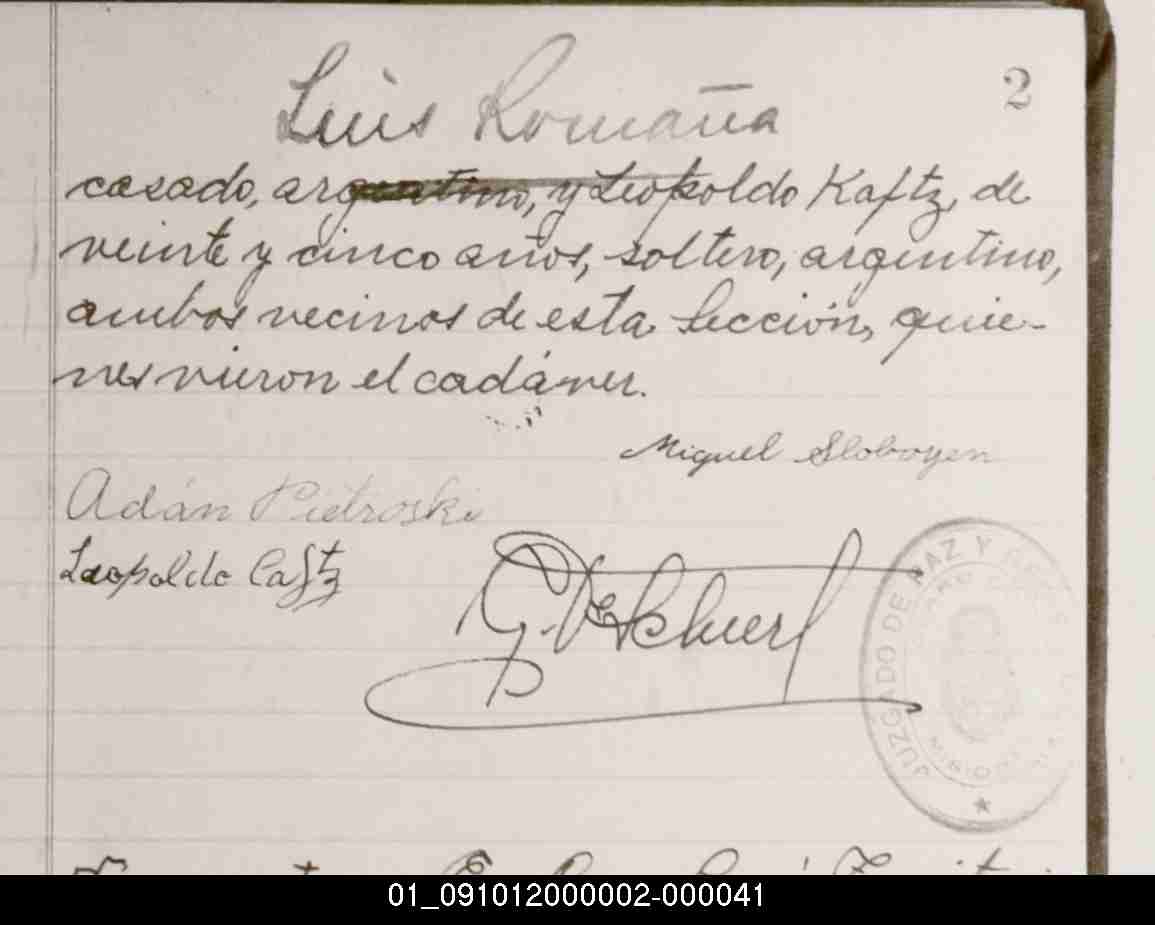 Luis Romaña
2
casado, argentino, y Leopoldo Kaftz, de
veinte y cinco años, soltero, argentino,
ambos vecinos de esta Sección, quie-
nes vieron el cadáver.
Miguel Sloboyen
Adán Pietroski
Leopoldo Caftz
JUZGADO DE PAZ Y
01_091012000002-000041